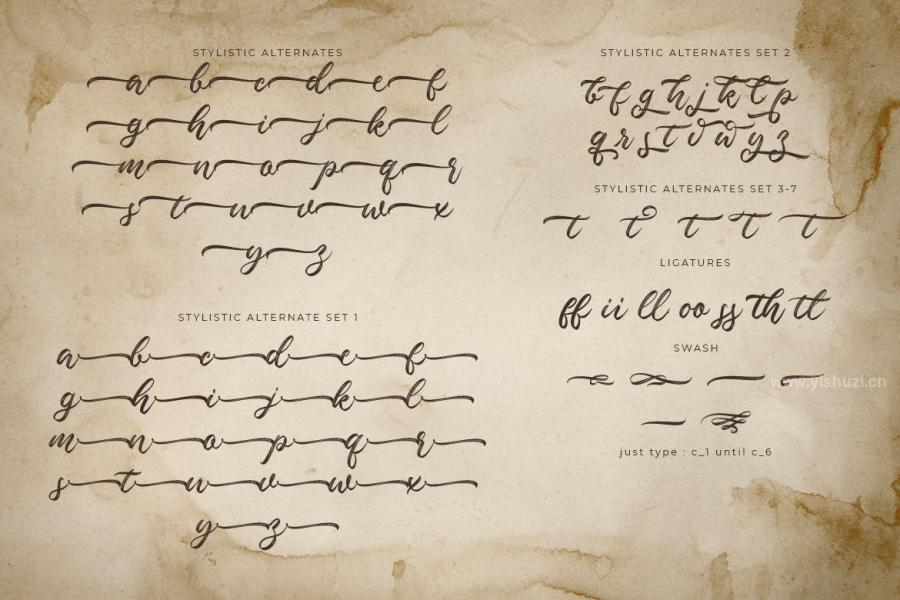 STYLISTIC ALTERNATES
a b c d e f
g h i j k l
m n o p q r
s t u v w x
y z
STYLISTIC ALTERNATE SET 1
a b c d e f
g h i j k l
m n o p q r
s t u v w x
y z
STYLISTIC ALTERNATES SET 2
b f g h j k l p
q r s t v w y z
STYLISTIC ALTERNATES SET 3-7
t t t t t
LIGATURES
ff ii ll oo ss th tt
SWASH
www.yishuzi.cn
just type : c_1 until c_6